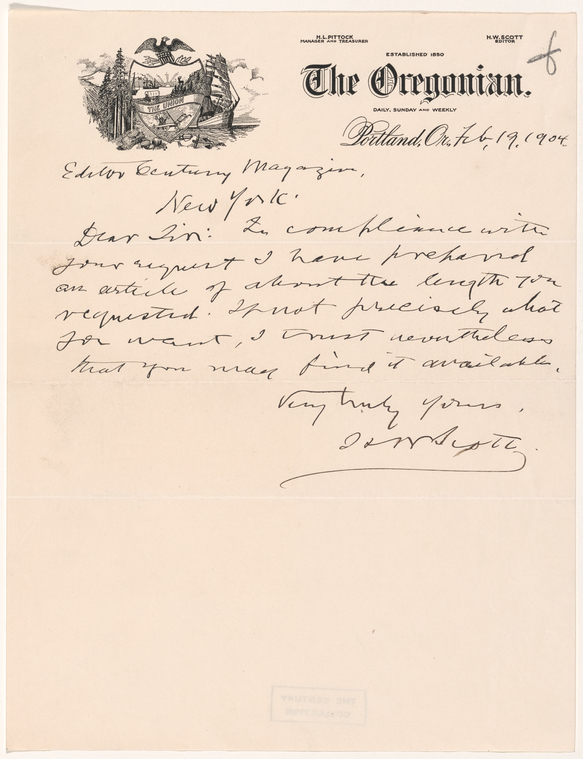 H.L. PITTOCK
MANAGER AND TREASURER
H.W. SCOTT
EDITOR
ESTABLISHED 1850
The Oregonian.
DAILY, SUNDAY AND WEEKLY
THE UNION
Portland, Or. Feb, 19, 1904
Editor Century Magazine,
New York.
Dear Sir: In compliance with
your request I have prepared
an article of about the length you
requested. If not precisely what
you want, I trust nevertheless
that you may find it available.
Very truly yours,
H W Scott.